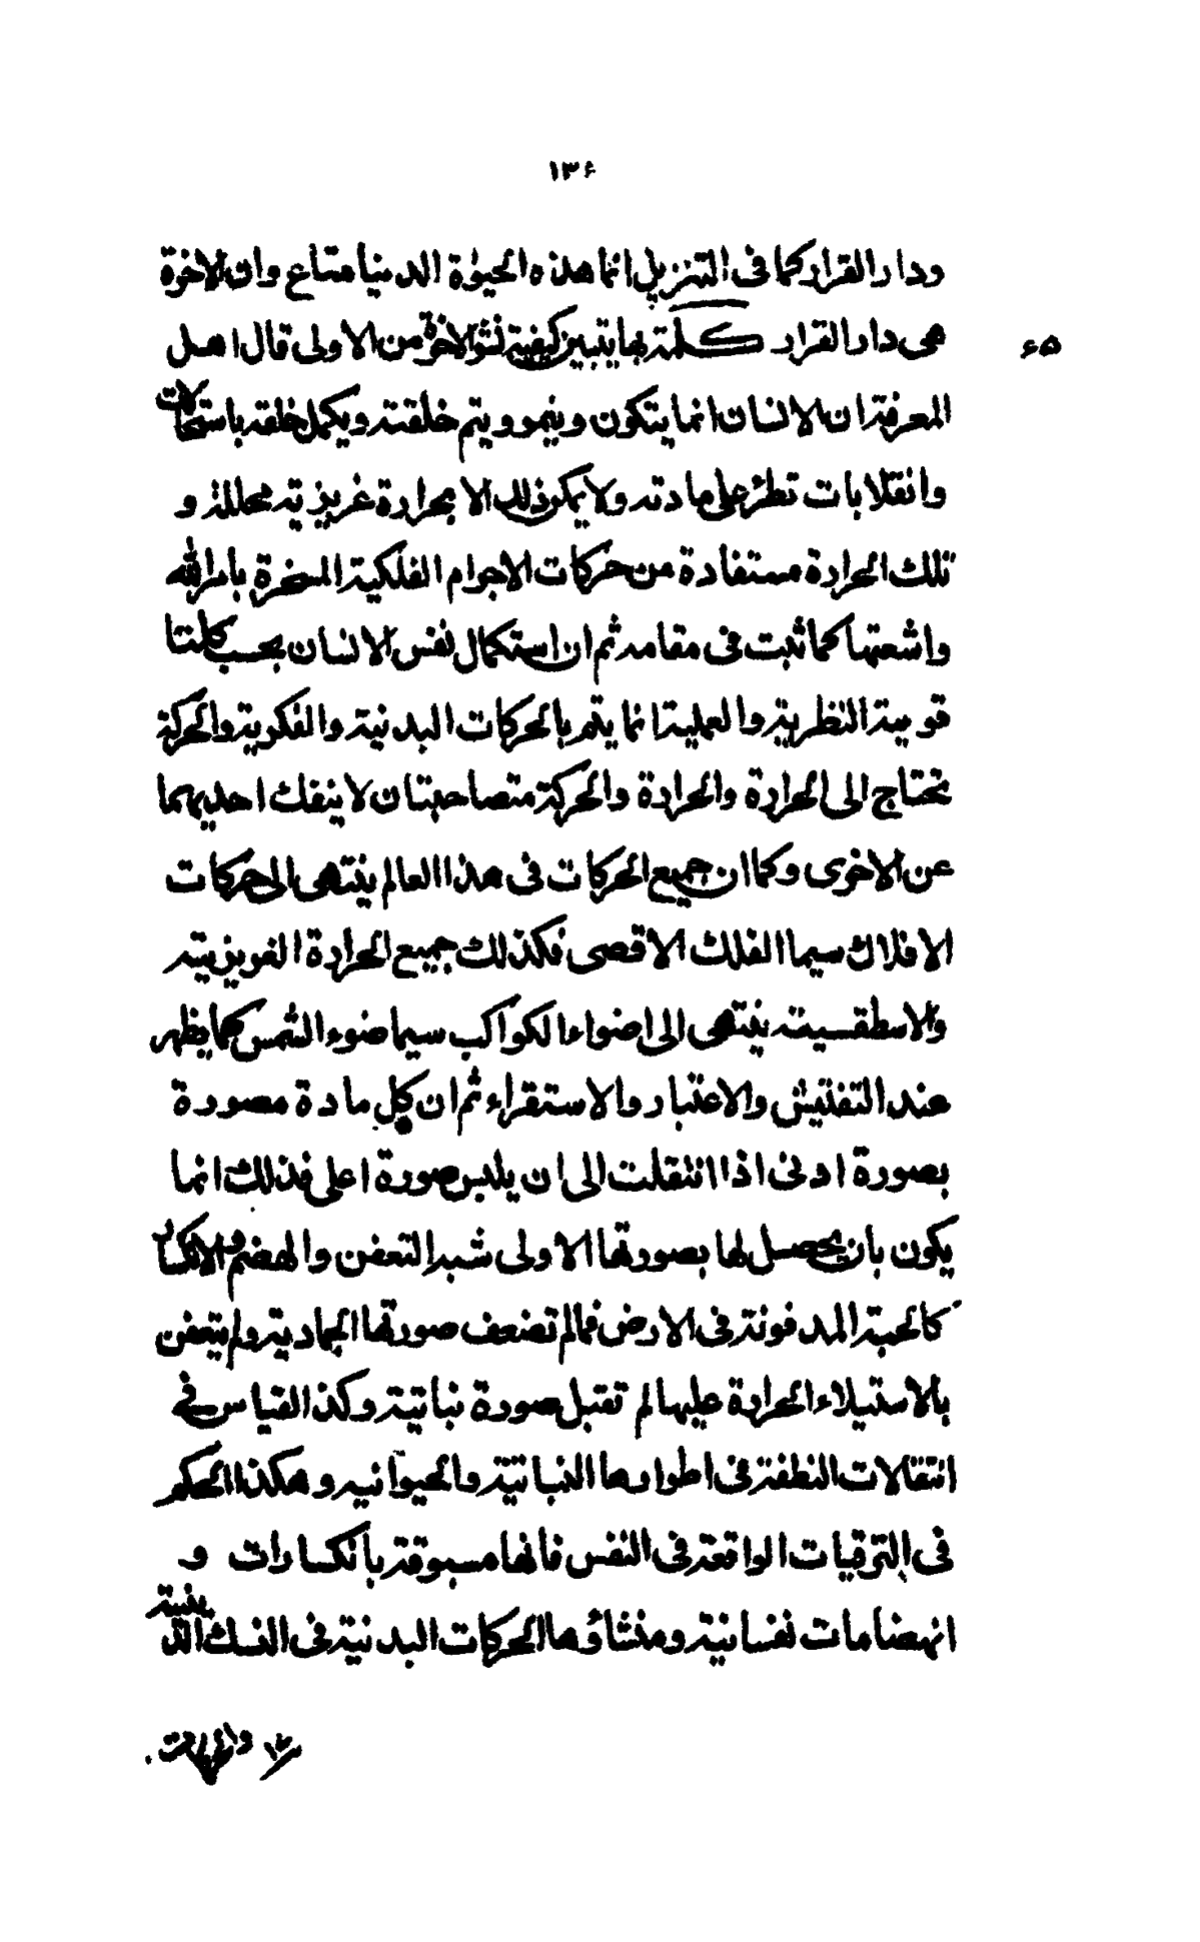 ١٣۶
ودار القرار كما فى التنزيل انما هذه الحيوٰة الدنيا متاع وان الاخرة
هى دار القرار كلمة بها يتبين كيفية نشو الاخرة من الاولى قال اهل
۶۵
المعرفة ان الانسان انما يتكون وينمو ويتم خلقته ويكمل خلقه باستحالات
وانقلابات تطرء على مادته ولا يكون ذلك الا بحرارة غريزية محللة و
تلك الحرارة مستفادة من حركات الاجرام الفلكية المسخرة بامر الله
واشعتها كما ثبت فى مقامه ثم ان استكمال نفس الانسان بحسب كلتا
قوييه النظرية والعملية انما يتم بالحركات البدنية والفكرية والحركة
تحتاج الى الحرارة والحرارة والحركة متصاحبتان لا ينفك احديهما
عن الاخرى وكما ان جميع الحركات فى هذا العالم ينتهى الى حركات
الافلاك سيما الفلك الاقصى فكذلك جميع الحرارة الغريزيته
والاسطقسيته ينتهى الى اضواء الكواكب سيما ضوء الشمس كما يظهر
عند التفتيش والاعتبار والاستقراء ثم ان كل مادة مصورة
بصورة ادنى اذا انتقلت الى ان يلبس صورة اعلى فذلك انما
يكون بان يحصل لها بصورتها الاولى شبه التعفن والهضم والانكسار
كالحبة المدفونة فى الارض فمالم تضعف صورتها الجمادية ولم يتعفن
بالاستيلاء الحرارة عليها لم تقبل صورة نباتية وكذ القياس في
انتقالات النطفة فى اطوارها النباتية والحيوانيه وهكذا الحكم
فى الترقيات الواقعة فى النفس فانها مسبوقة بانكسارات و
انهضامات نفسانية ومنشاؤها الحركات البدنية فى النسك الدينية